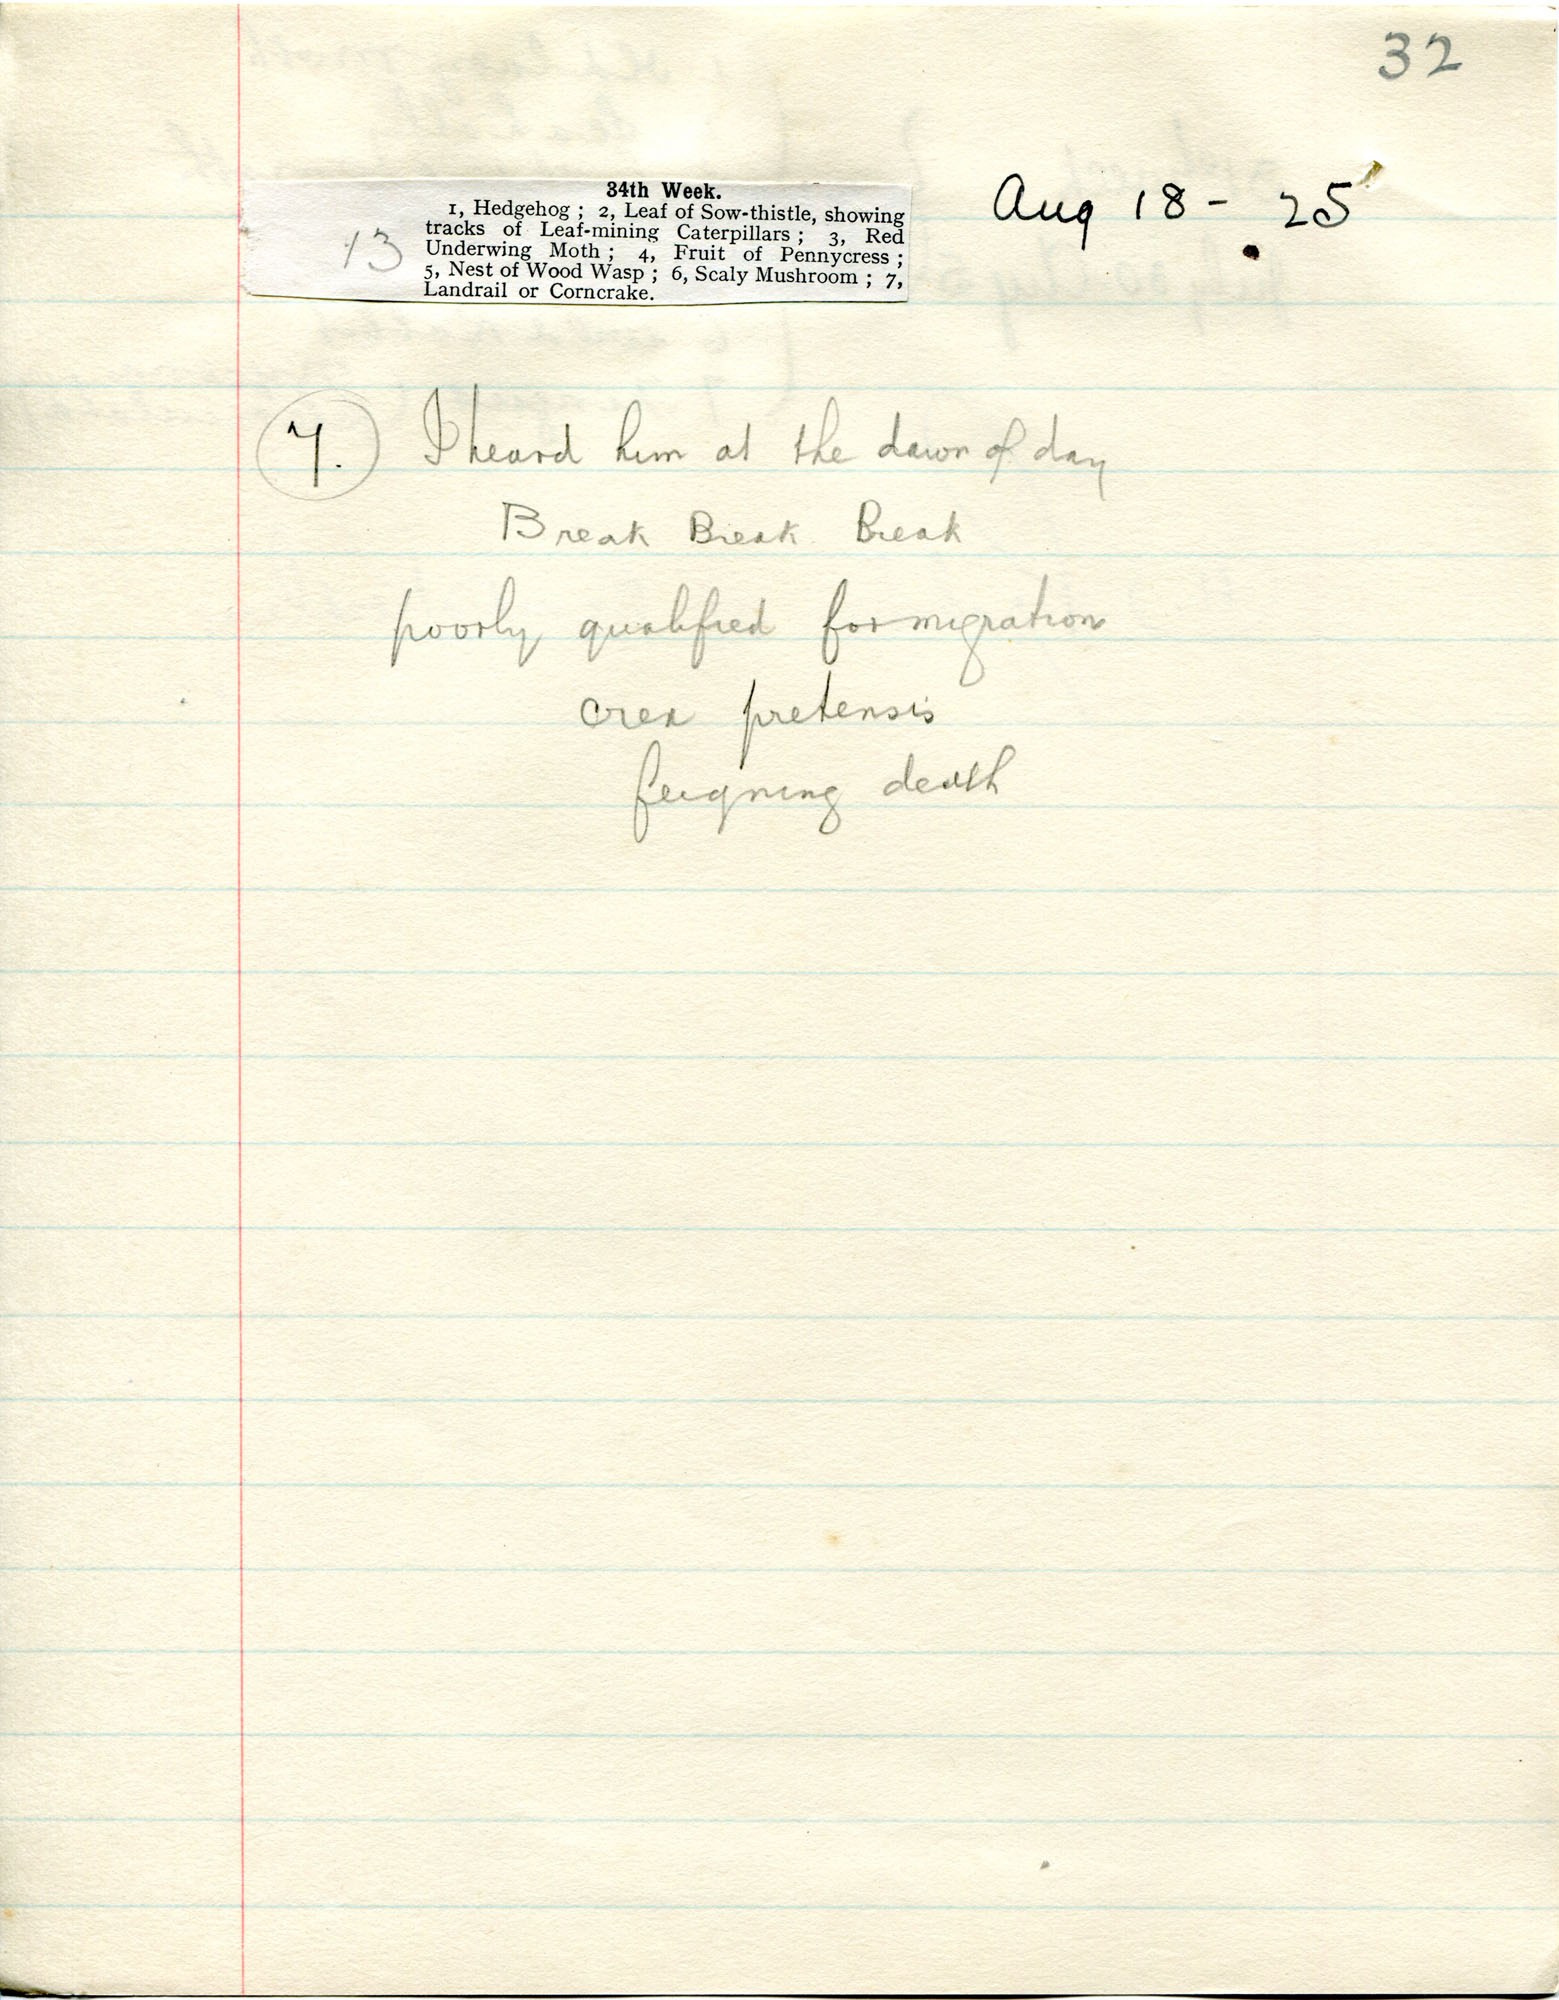 32
Aug 18 - 25
34th Week.
1, Hedgehog ; 2, Leaf of Sow-thistle, showing
tracks of Leaf-mining Caterpillars ; 3, Red
Underwing Moth ; 4, Fruit of Pennycress ;
5, Nest of Wood Wasp ; 6, Scaly Mushroom ; 7,
Landrail or Corncrake.
13
7. I heard him at the dawn of day
Break Break Break
poorly qualified for migration
crex pretensis
feigning death